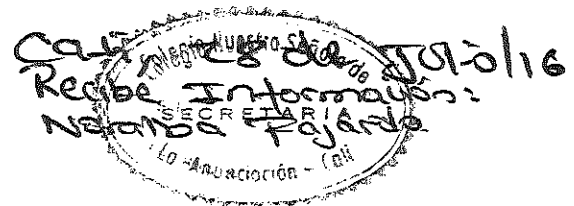 Cali, 28 de Julio/16
Recibe Información:
Nataloa Fajardo
Colegio Nuestra Señora de
SECRETARIA
La Anunciación - Cali